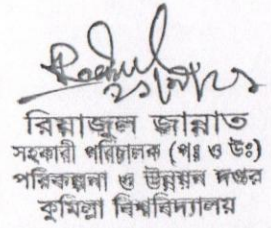 রিয়াজুল জান্নাত
সহকারী পরিচালক (পঃ ও উঃ)
পরিকল্পনা ও উন্নয়ন দপ্তর
কুমিল্লা বিশ্ববিদ্যালয়